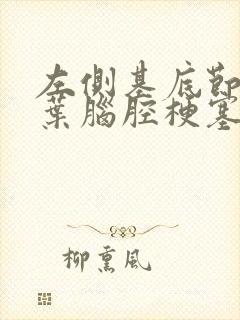 左側基底節
葉腦腔梗塞
柳熏風